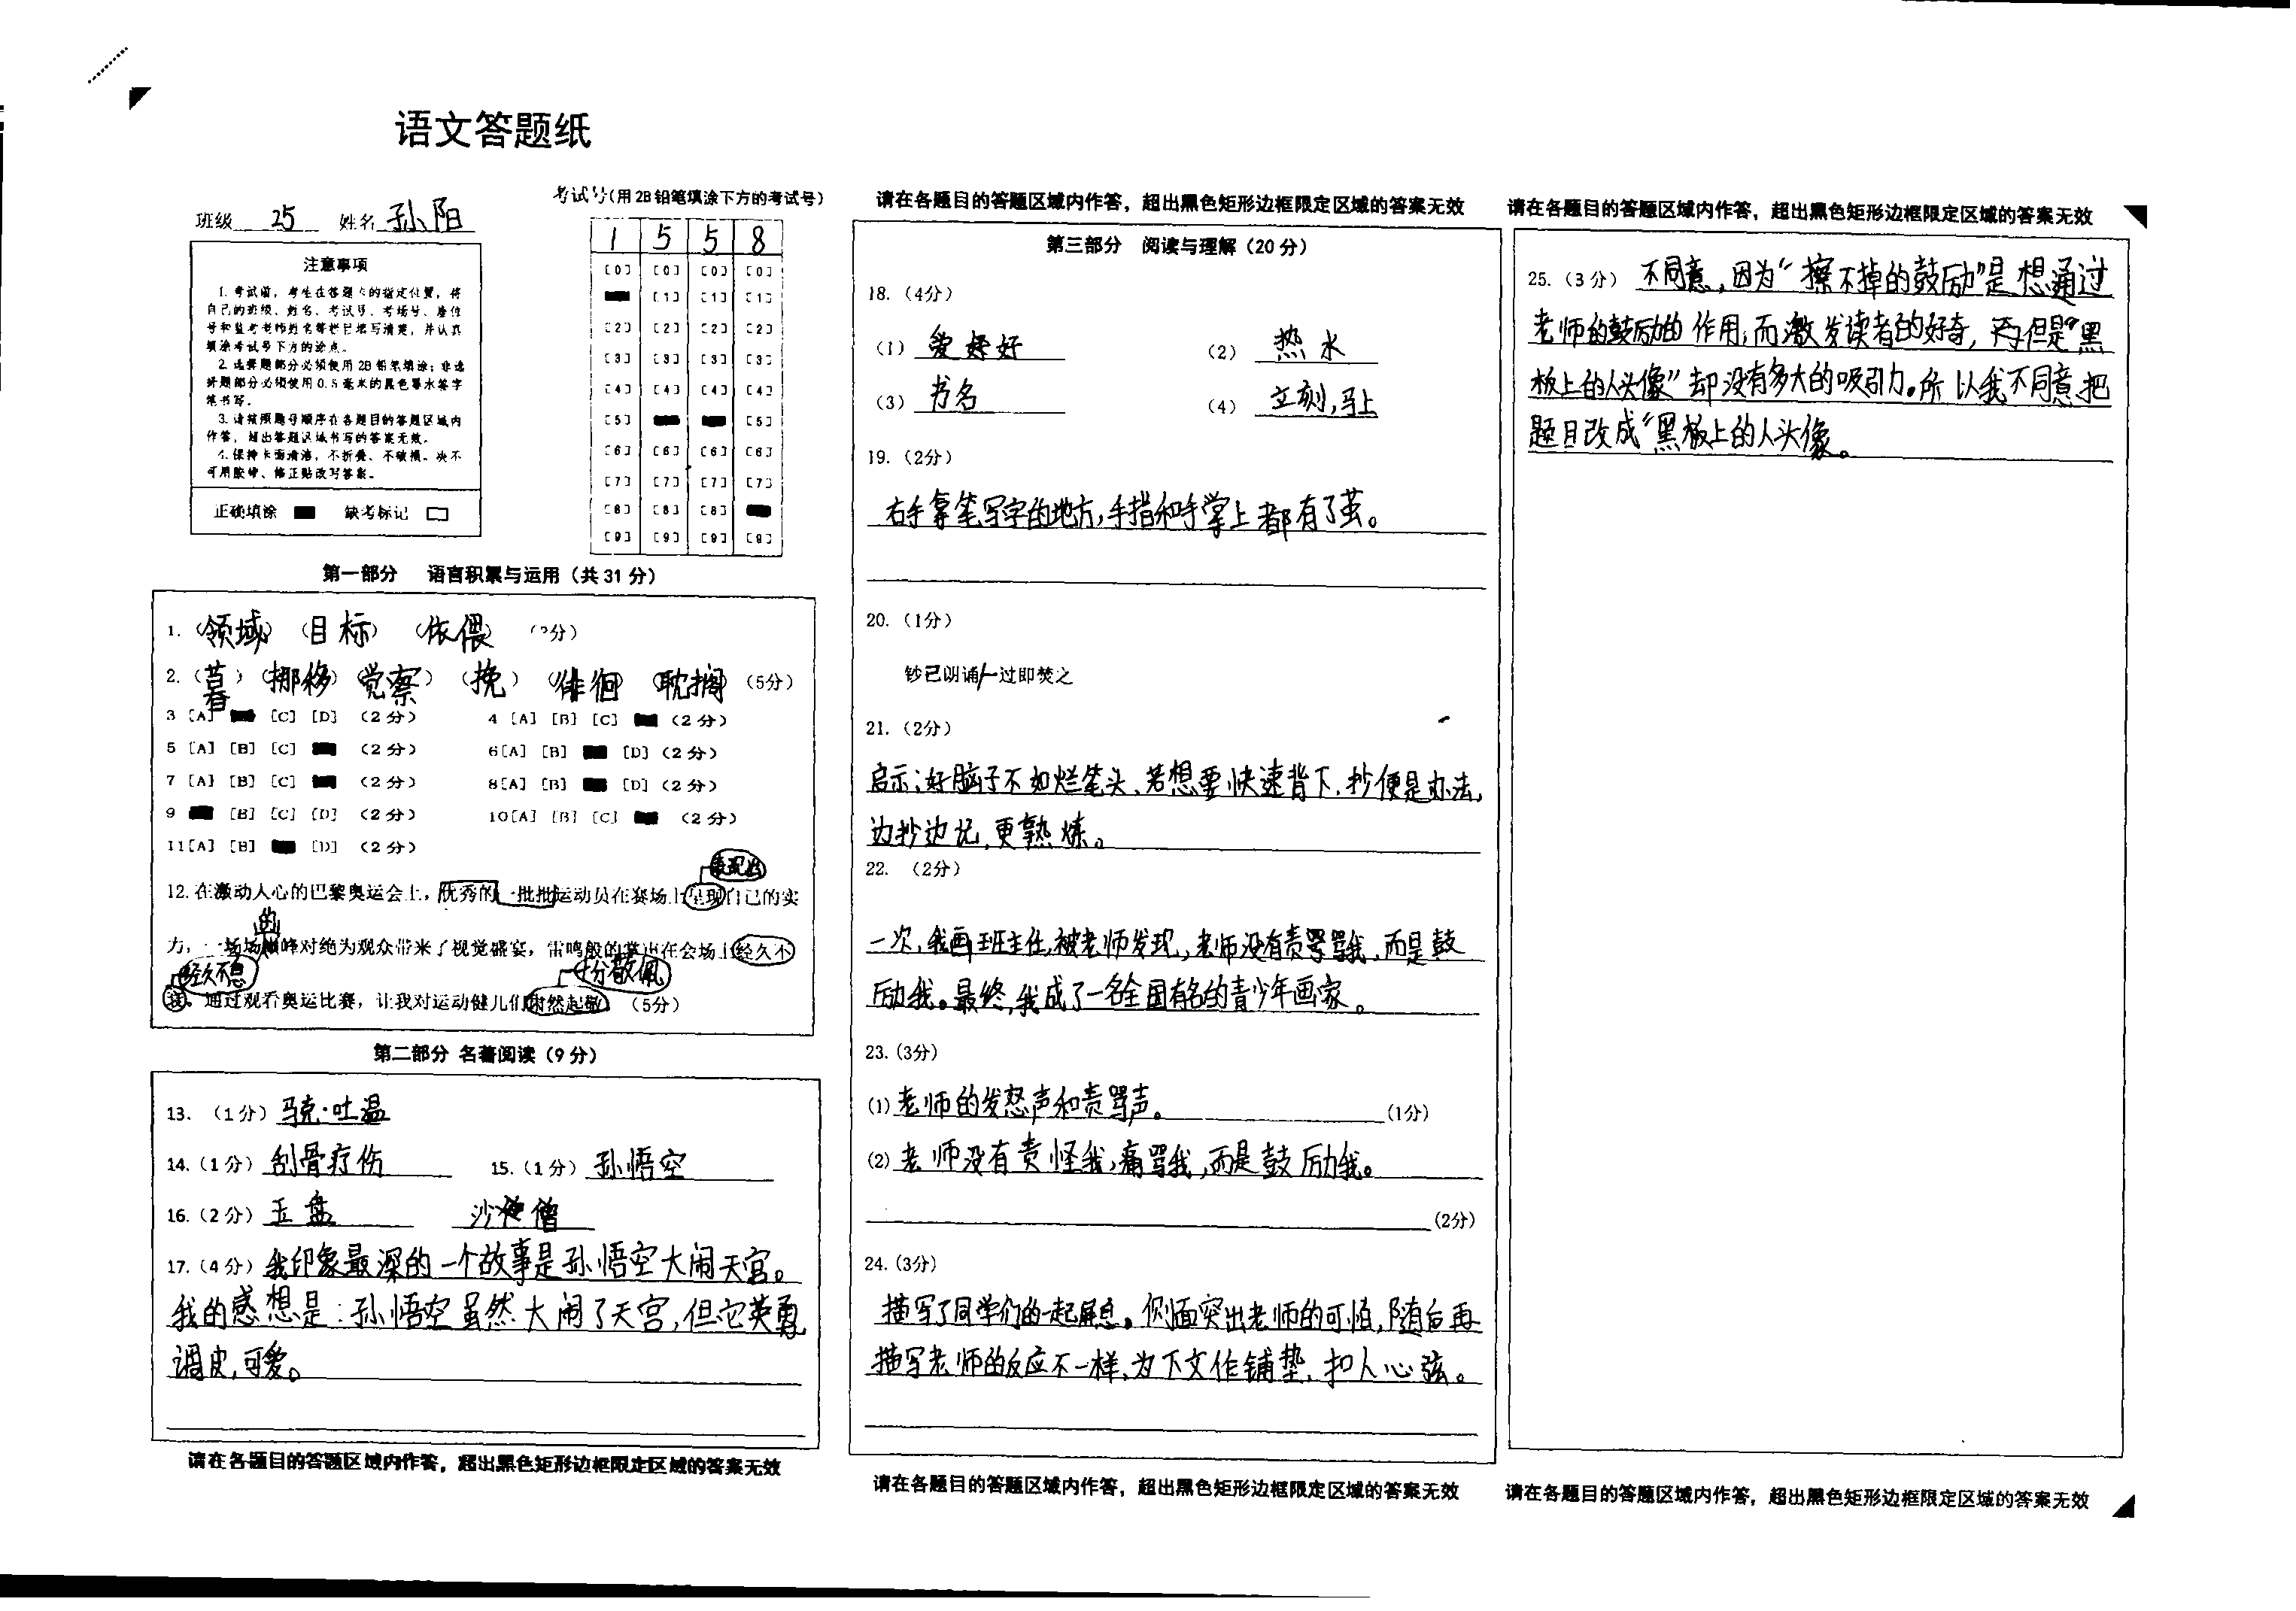 语文答题纸
班级 25 姓名 孙阳
考试号(用2B铅笔填涂下方的考试号)
1 5 5 8
注意事项
1.考试前，考生在答题卡的指定位置，将
自己的班级、姓名、考试号、考场号、座位
号和监考老师姓名等栏目填写清楚，并认真
填涂考试号下方的涂点。
2.选择题部分必须使用2B铅笔填涂；非选
择题部分必须使用0.5毫米的黑色墨水签字
笔书写。
3.请按照题号顺序在各题目的答题区域内
作答，超出答题区域书写的答案无效。
4.保持卡面清洁，不折叠、不破损。决不
可用胶带、修正贴改写答案。
正确填涂 缺考标记
[0] [0] [0] [0]
[1] [1] [1]
[2] [2] [2] [2]
[3] [3] [3] [3]
[4] [4] [4] [4]
[5] [5]
[6] [6] [6] [6]
[7] [7] [7] [7]
[8] [8] [8]
[9] [9] [9] [9]
第一部分 语言积累与运用（共31分）
1.（领域）（目标）（依偎）（2分）
2.（暮春）（挪移）（觉察）（挽）（徘徊）（耽搁）（5分）
3 [A] [C] [D] （2分） 4 [A] [B] [C] （2分）
5 [A] [B] [C] （2分） 6[A] [B] [D]（2分）
7 [A] [B] [C] （2分） 8[A] [B] [D]（2分）
9 [B] [C] [D] （2分） 10[A] [B] [C] （2分）
11[A] [B] [D] （2分）
表现出
12.在激动人心的巴黎奥运会上，优秀的一批批运动员在赛场上呈现自己的实
的
力，一场场巅峰对绝为观众带来了视觉盛宴，雷鸣般的掌声在会场上经久不
经久不息 十分敬佩
通过观看奥运比赛，让我对运动健儿们肃然起敬。（5分）
第二部分 名著阅读（9分）
13.（1分）马克·吐温
14.（1分）刮骨疗伤 15.（1分）孙悟空
16.（2分）玉盘 沙僧
17.（4分）我印象最深的一个故事是孙悟空大闹天宫。
我的感想是：孙悟空虽然大闹了天宫，但它英勇
调皮，可爱。
请在各题目的答题区域内作答，超出黑色矩形边框限定区域的答案无效
请在各题目的答题区域内作答，超出黑色矩形边框限定区域的答案无效
第三部分 阅读与理解（20分）
18.（4分）
（1）爱好 （2）热水
（3）书名 （4）立刻，马上
19.（2分）
右手拿笔写字的地方，手指和手掌上都有了茧。
20.（1分）
钞已朗诵/一过即焚之
21.（2分）
启示：好脑子不如烂笔头、若想要快速背下，抄便是办法，
边抄边记，更熟炼。
22.（2分）
一次，我画班主任，被老师发现，老师没有责骂我，而是鼓
励我。最终，我成了一名全国有名的青少年画家。
23.（3分）
（1）老师的发怒声和责骂声。（1分）
（2）老师没有责怪我，痛骂我，而是鼓励我。
（2分）
24.（3分）
描写了同学们的一起屏息。侧面突出老师的可怕，随后再
描写老师的反应不一样，为下文作铺垫，扣人心弦。
请在各题目的答题区域内作答，超出黑色矩形边框限定区域的答案无效
请在各题目的答题区域内作答，超出黑色矩形边框限定区域的答案无效
25.（3分）不同意，因为“擦不掉的鼓励”是想通过
老师的鼓励的作用，而激发读者的好奇，但是“黑
板上的人头像”却没有多大的吸引力。所以我不同意把
题目改成“黑板上的人头像。
请在各题目的答题区域内作答，超出黑色矩形边框限定区域的答案无效